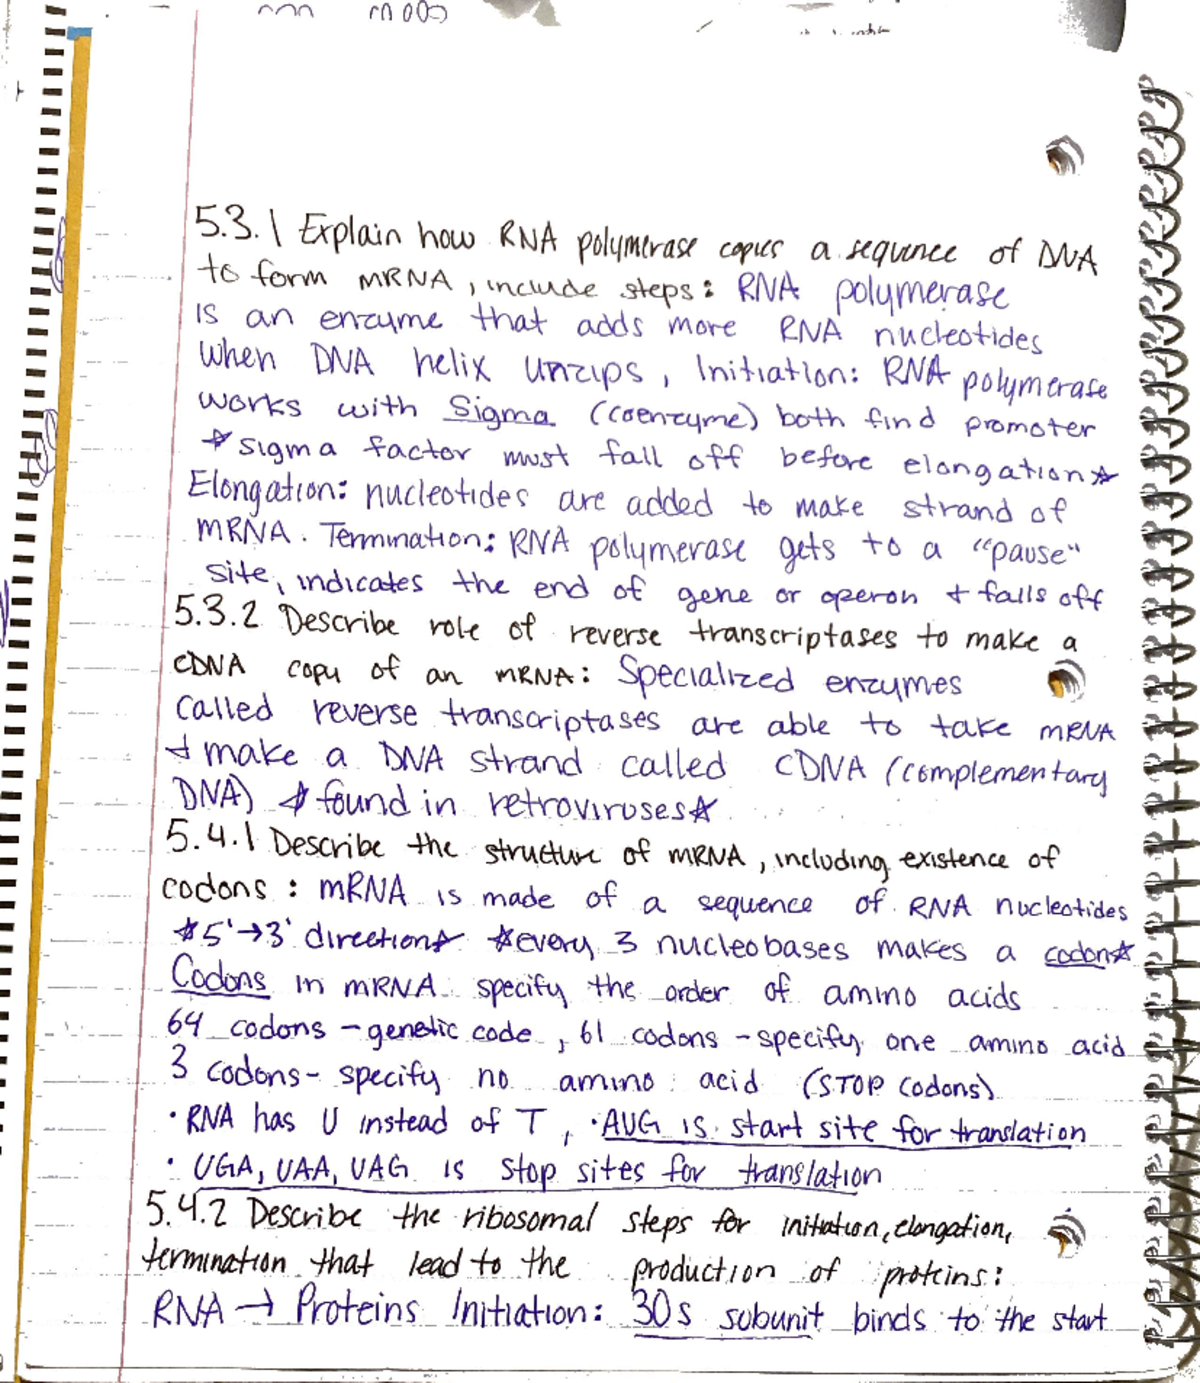 5.3.1 Explain how RNA polymerase copies a sequence of DNA
to form mRNA, include steps: RNA polymerase
is an enzyme that adds more RNA nucleotides
when DNA helix unzips, Initiation: RNA polymerase
works with Sigma (coenzyme) both find promoter
☆ sigma factor must fall off before elongation ☆
Elongation: nucleotides are added to make strand of
mRNA. Termination: RNA polymerase gets to a "pause"
site, indicates the end of gene or operon + falls off
5.3.2 Describe role of reverse transcriptases to make a
cDNA copy of an mRNA: Specialized enzymes
called reverse transcriptases are able to take mRNA
+ make a DNA strand called cDNA (complementary
DNA) ☆ found in retroviruses ☆
5.4.1 Describe the structure of mRNA, including existence of
codons: mRNA is made of a sequence of RNA nucleotides
☆ 5'→3' direction ☆ ☆ every 3 nucleobases makes a codon ☆
Codons in mRNA specify the order of amino acids
64 codons - genetic code, 61 codons - specify one amino acid
3 codons - specify no amino acid (STOP codons)
• RNA has U instead of T, • AUG is start site for translation
• UGA, UAA, UAG is stop sites for translation
5.4.2 Describe the ribosomal steps for initiation, elongation,
termination that lead to the production of proteins:
RNA → Proteins Initiation: 30s subunit binds to the start